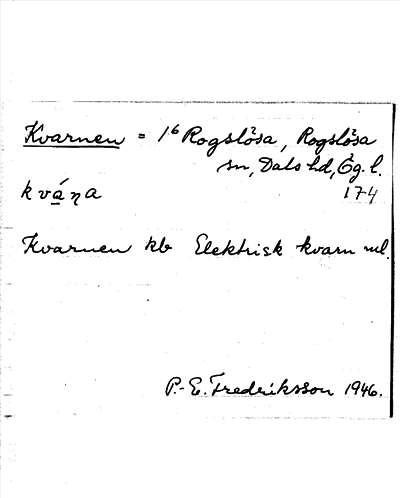 Kvarnen = 1⁶ Rogslösa, Rogslösa
sn, Dals hd, Ög. l.
kváꞃa 174
Kvarnen kb Elektrisk kvarn ml.
P.-E. Fredriksson 1946.